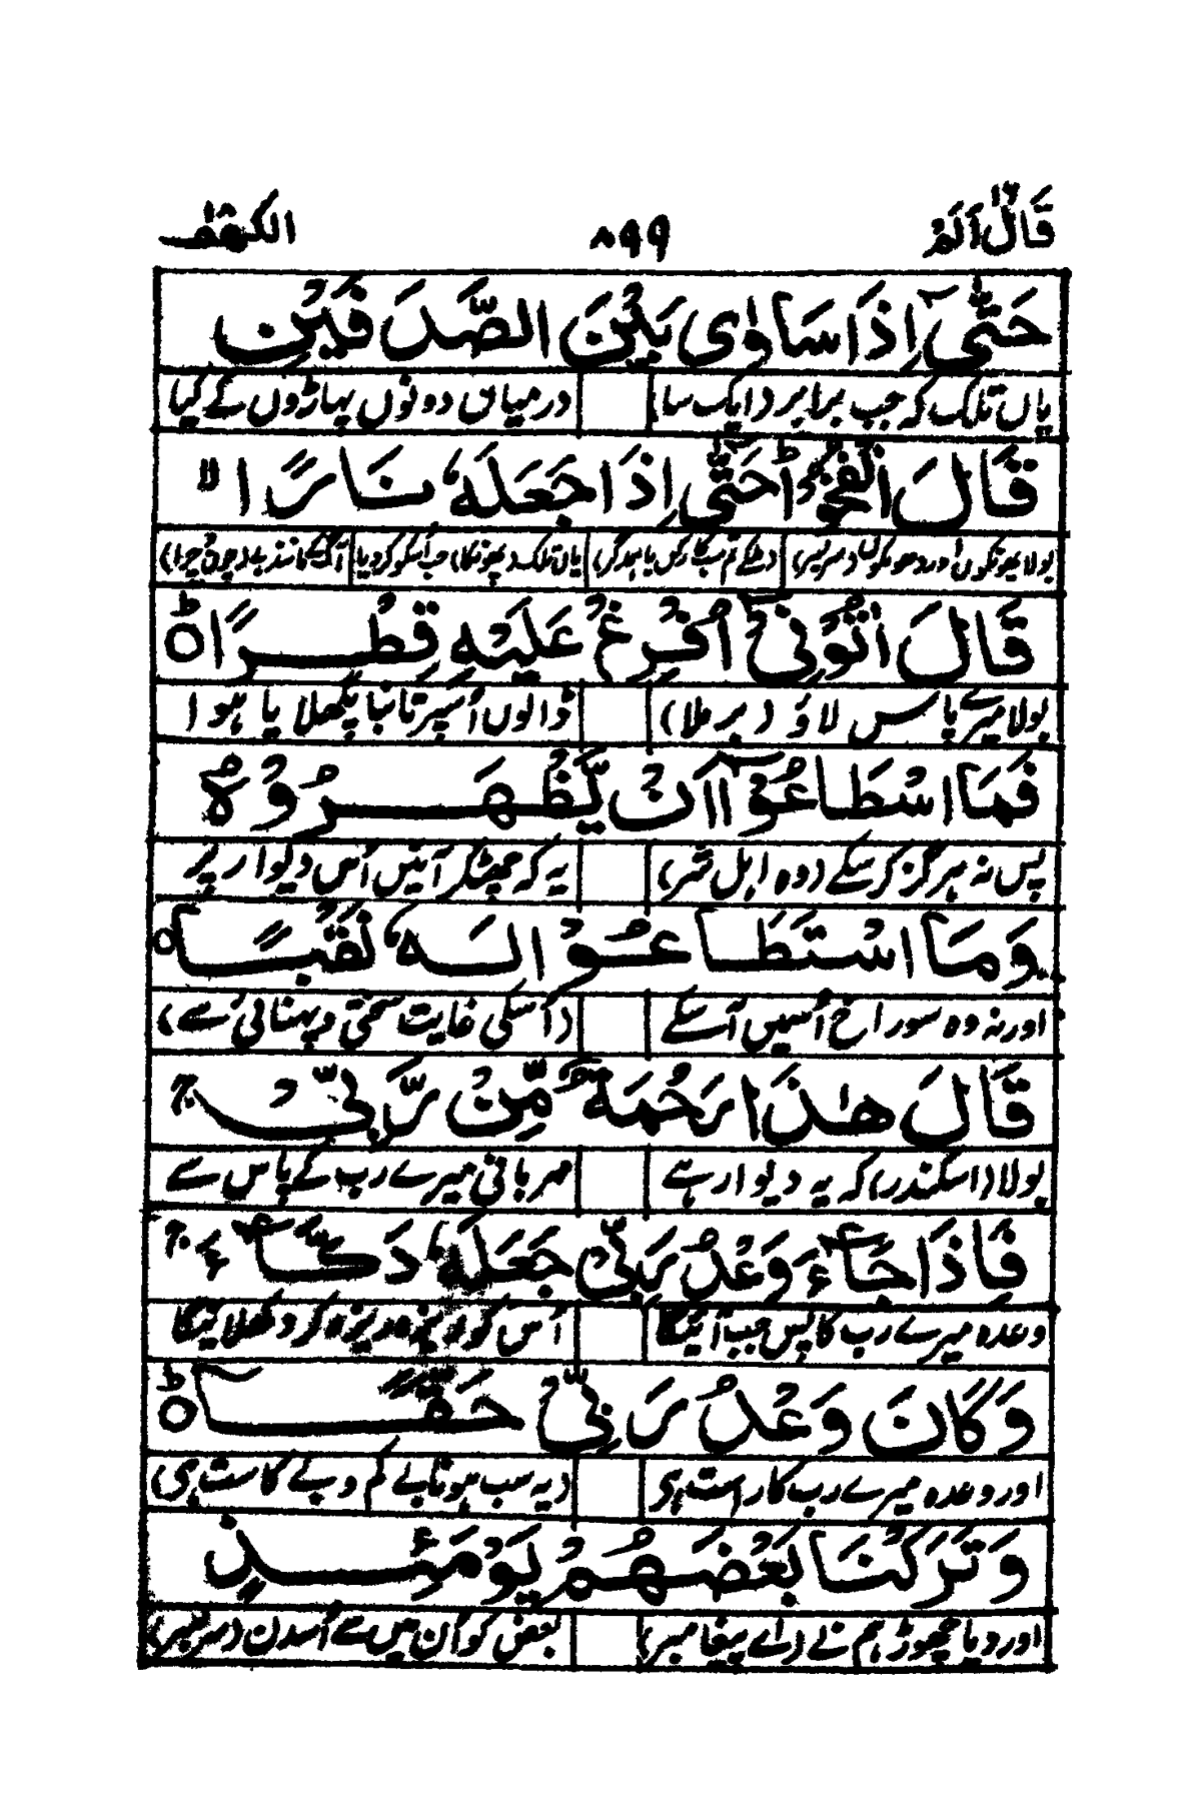 قَالَ اَلَمْ ١٦ ٨٩٩ الكهف ١٨
حَتّٰٓى اِذَا سَاوٰى بَيْنَ الصَّدَفَيْنِ
یاں تلک کہ جب برابر دایک سا) درمیان دونوں پہاڑوں کے کیا
قَالَ انْفُخُوْا ؕ حَتّٰٓى اِذَا جَعَلَهٗ نَارًا ۙ
بولا پھونکوں
قَالَ اٰتُوْنِىْۤ اُفْرِغْ عَلَيْهِ قِطْرًا ؕ
بولا میرے پاس لاؤ (برملا) ڈالوں اُسپر تانبا پگھلا یا ہوا
فَمَا اسْطَاعُوْۤا اَنْ يَّظْهَرُوْهُ
پس نہ ہرگز کر سکے (وہ اہل شر) یہ کہ چڑھکر آئیں اُس دیوار پر
وَمَا اسْتَطَاعُوْا لَهٗ نَقْبًا
اور نہ وہ سوراخ اُسمیں آ سکے (اُسکی غایت سختی و پہنائی سے)
قَالَ هٰذَا رَحْمَةٌ مِّنْ رَّبِّىْ ۚ
بولا (اسکندر) کہ یہ دیوار ہے مہربانی میرے رب کے پاس سے
فَاِذَا جَآءَ وَعْدُ رَبِّىْ جَعَلَهٗ دَكَّآءَ ۚ
وعدہ میرے رب کا پس جب آئیگا اُس کو ریزہ ریزہ کر دکھلائیگا
وَكَانَ وَعْدُ رَبِّىْ حَقًّا ؕ
اور وعدہ میرے رب کا راست ہی (یہ سب ہوتا بے کم و بے کاست ہی)
وَتَرَكْنَا بَعْضَهُمْ يَوْمَئِذٍ
اور دیا چھوڑ ہم نے (اے پیغامبر) بعض کو اُن میں سے اُسدن (سربسر)